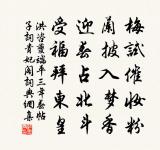 梅試催妝粉
蘭披入夢香
迎春占北斗
受福拜東皇
洪咨夔端平三年春帖
子詞貴妃閣詞典網集